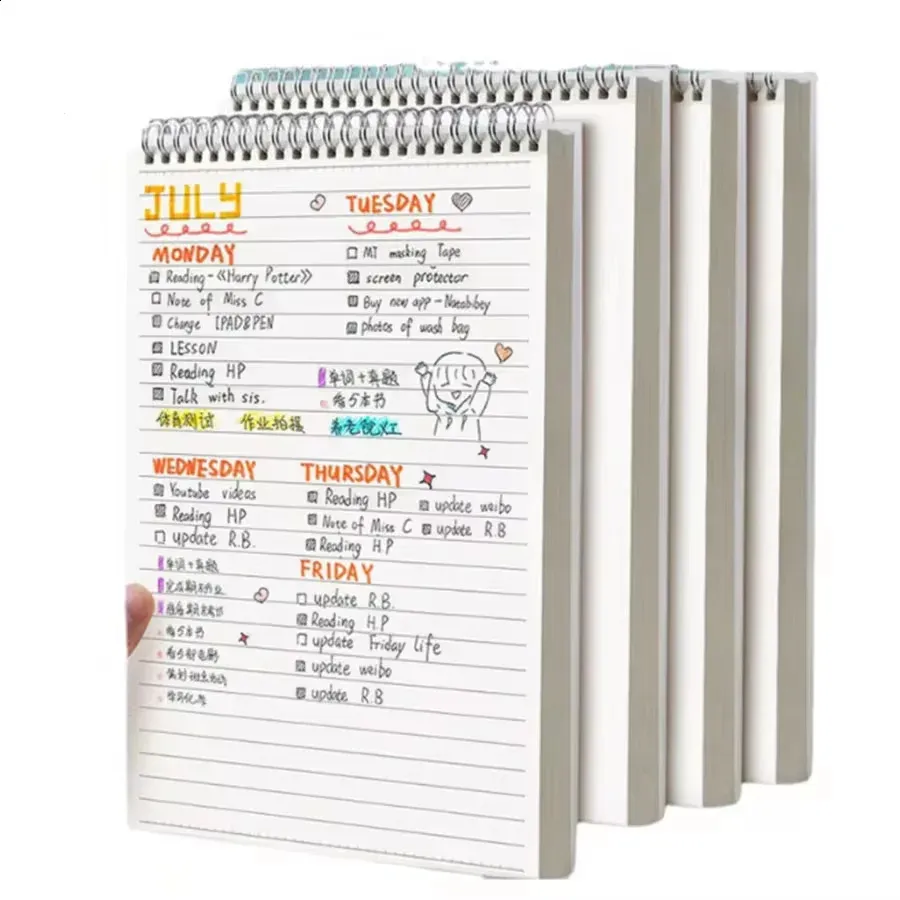 JULY
MONDAY
Reading-《Harry Potter》
Note of Miss C
Change IPAD&PEN
LESSON
Reading HP
Talk with sis.
体育测试 作业拍摄
TUESDAY
MT masking Tape
screen protector
Buy new app - Notability
photos of wash bag
单词+真题
看5本书
养老院义工
WEDNESDAY
Youtube videos
Reading HP
update R.B.
单词+真题
完成期末作业
看5本书
看5部电影
学习化学
THURSDAY
Reading HP
Note of Miss C
Reading HP
update weibo
update R.B
FRIDAY
update R.B.
Reading HP
update Friday life
update weibo
update R.B